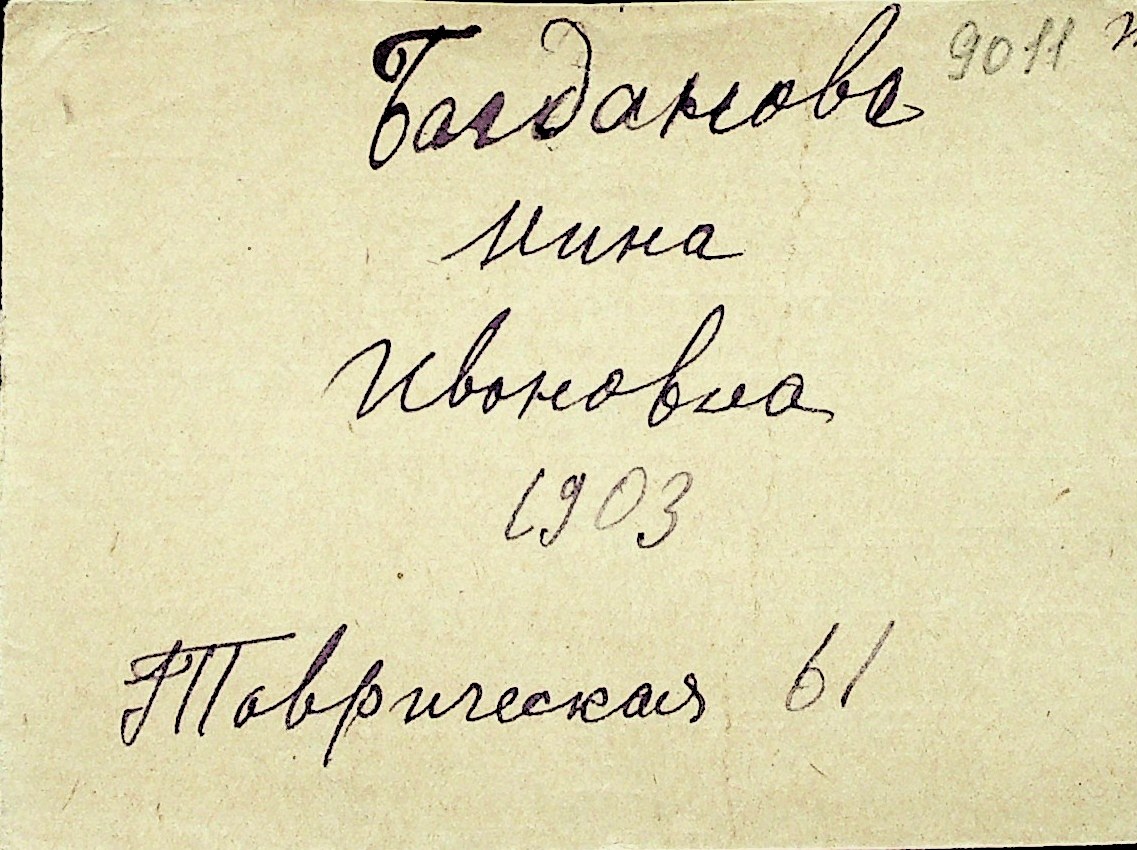 Богданова 9011
Нина
Ивановна
1903
Таврическая 61